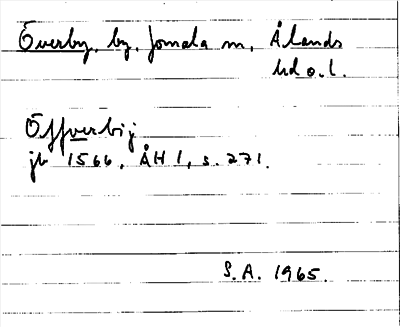 Överby, by, Jomala sn, Ålands
hd o. l.
Öffverbij
jb 1566, ÅH 1, s. 271.
S.A. 1965.